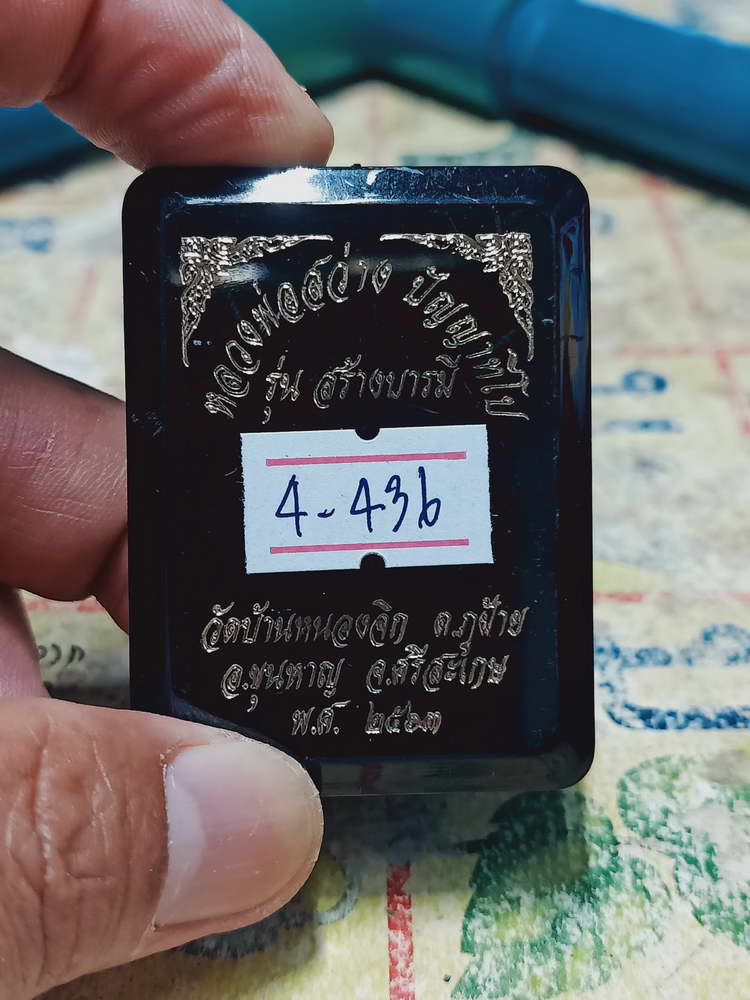 หลวงพ่อสว่าง ปัญญาทีโป
รุ่น สร้างบารมี
4-436
วัดบ้านหนองจิก ต.ภูฝ้าย
อ.ขุนหาญ จ.ศรีสะเกษ
พ.ศ. ๒๕๖๓